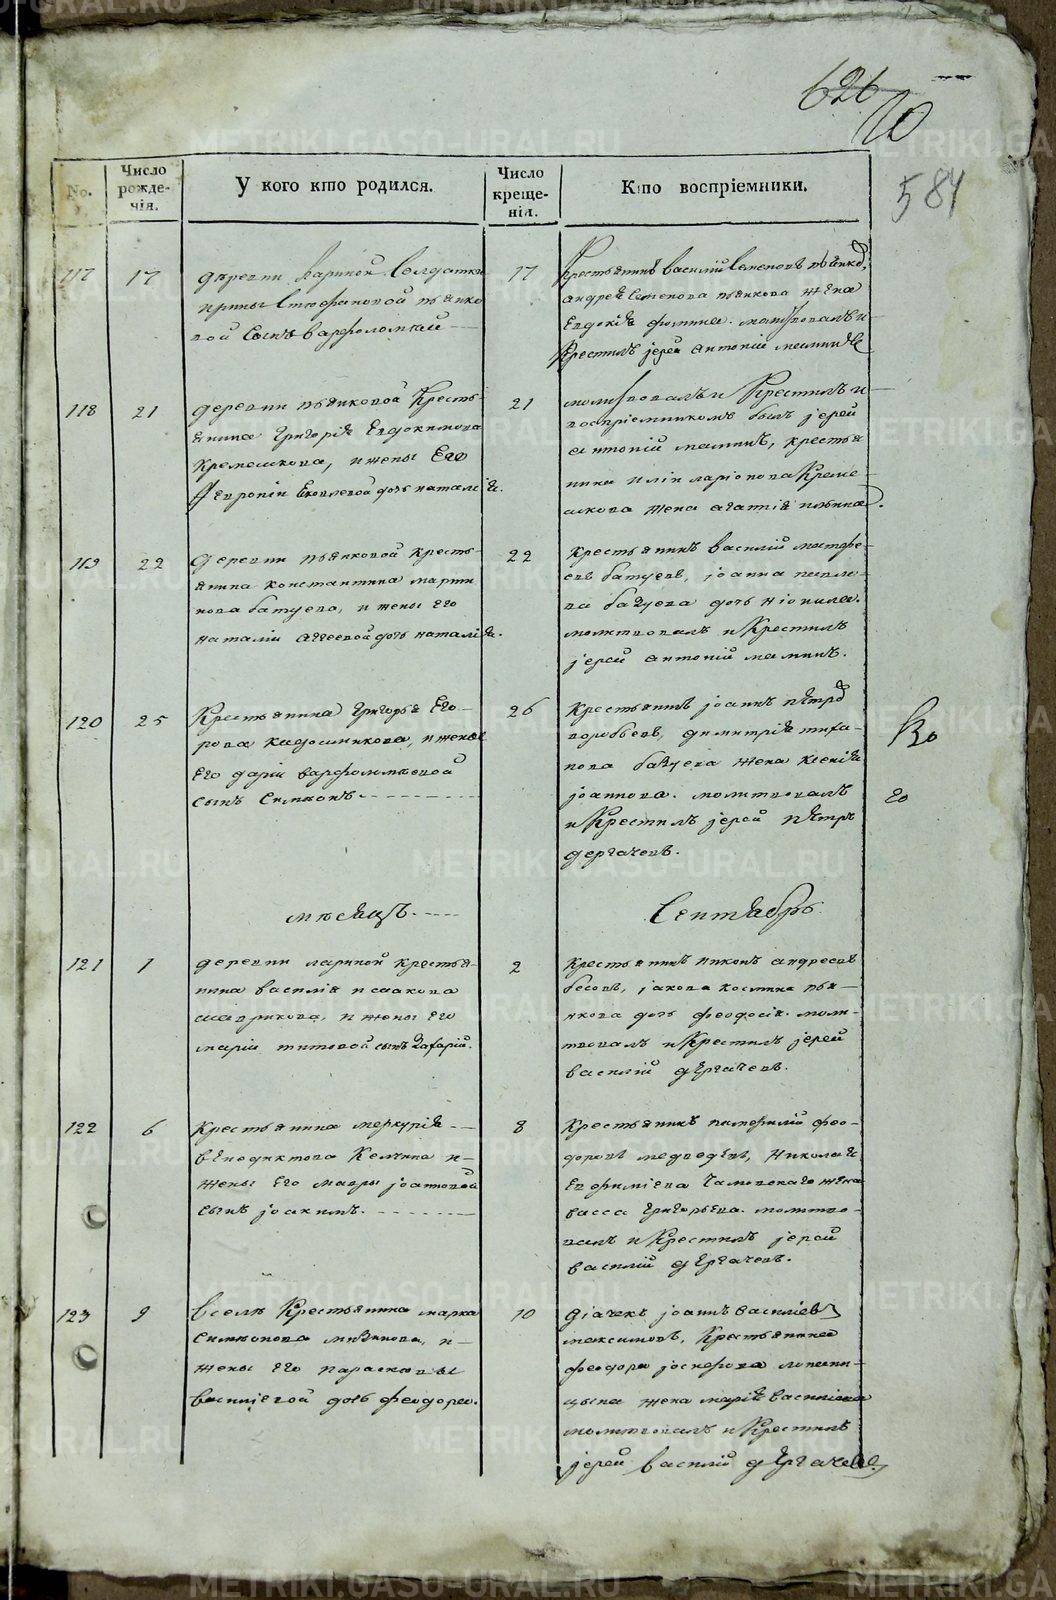 626
10
584
No.
Число рожде-нія.
У кого кто родился.
Число креще-нія.
Кто воспріемники.
117
17
деревни Лариной Солдатки
Ирины Стефановой пьянко
вой Сынъ варфоломѣй
17
Крестьянинъ василій Семеновъ пьянковъ,
андрея Семенова пьянкова жена
Евдокія фомина. молитвовалъ и
Крестилъ іерей антоній маминъ
118
21
деревни пьянковой Кресть-
янина григорія Евдокимова
Кремешкова, и жены Его
Февроніи Яковлевой дочь наталія.
21
молитвовалъ и Крестилъ и
воспріемникомъ былъ іерей
антоній маминъ, крестья
нина иларіонова Креме-
шкова жена агатія
119
22
деревни пьянковой кресть-
янина константина марти
нова батуева, и жены его
наталіи аггеевой дочь наталія.
22
крестьянинъ василій матфе-
евъ батуевъ, іоанна павло-
ва батуева дочь неонила.
молитвовалъ и Крестилъ
іерей антоній маминъ.
120
25
Крестьянина григорья Его-
рова кадошникова, и жены
его даріи варфоломѣевой
сынъ Симеонъ.
26
крестьянинъ іоаннъ петровъ
воробьевъ, димитрія тифа-
нова батуева жена ксенія
іоаннова. молитвовалъ
и Крестилъ іерей петръ
дергачевъ.
мѣсяцъ.
Сентябрь
121
1
деревни лариной крестья-
нина василія исаакова
шаврикова, и жены его
маріи титовой сынъ Захарій.
2
крестьянинъ никонъ андреевъ
бесовъ, іакова космина пья-
нкова дочь феодосія. моли-
твовалъ и Крестилъ іерей
василій дергачевъ.
122
6
крестьянина меркурія
венедиктова Келчина и
жены его мавры іоанновой
сынъ іоакимъ.
8
крестьянинъ памфилій фео-
доровъ медведевъ, николая
Евфиміева Чамовскаго жена
васса григорьева. молитво-
валъ и Крестилъ іерей
василій дергачевъ.
123
9
Вселѣ Крестьянина марка
симеонова мизинова, и
жены его параскевы
василіевой дочь феодора.
10
діачекъ іоаннъ василіевъ
максимовъ, Крестьянина
феодора іосифова
цына жена марія василіева
молитвовалъ и Крестилъ
іерей василій дергачевъ.
METRIKI.GASO-URAL.RU